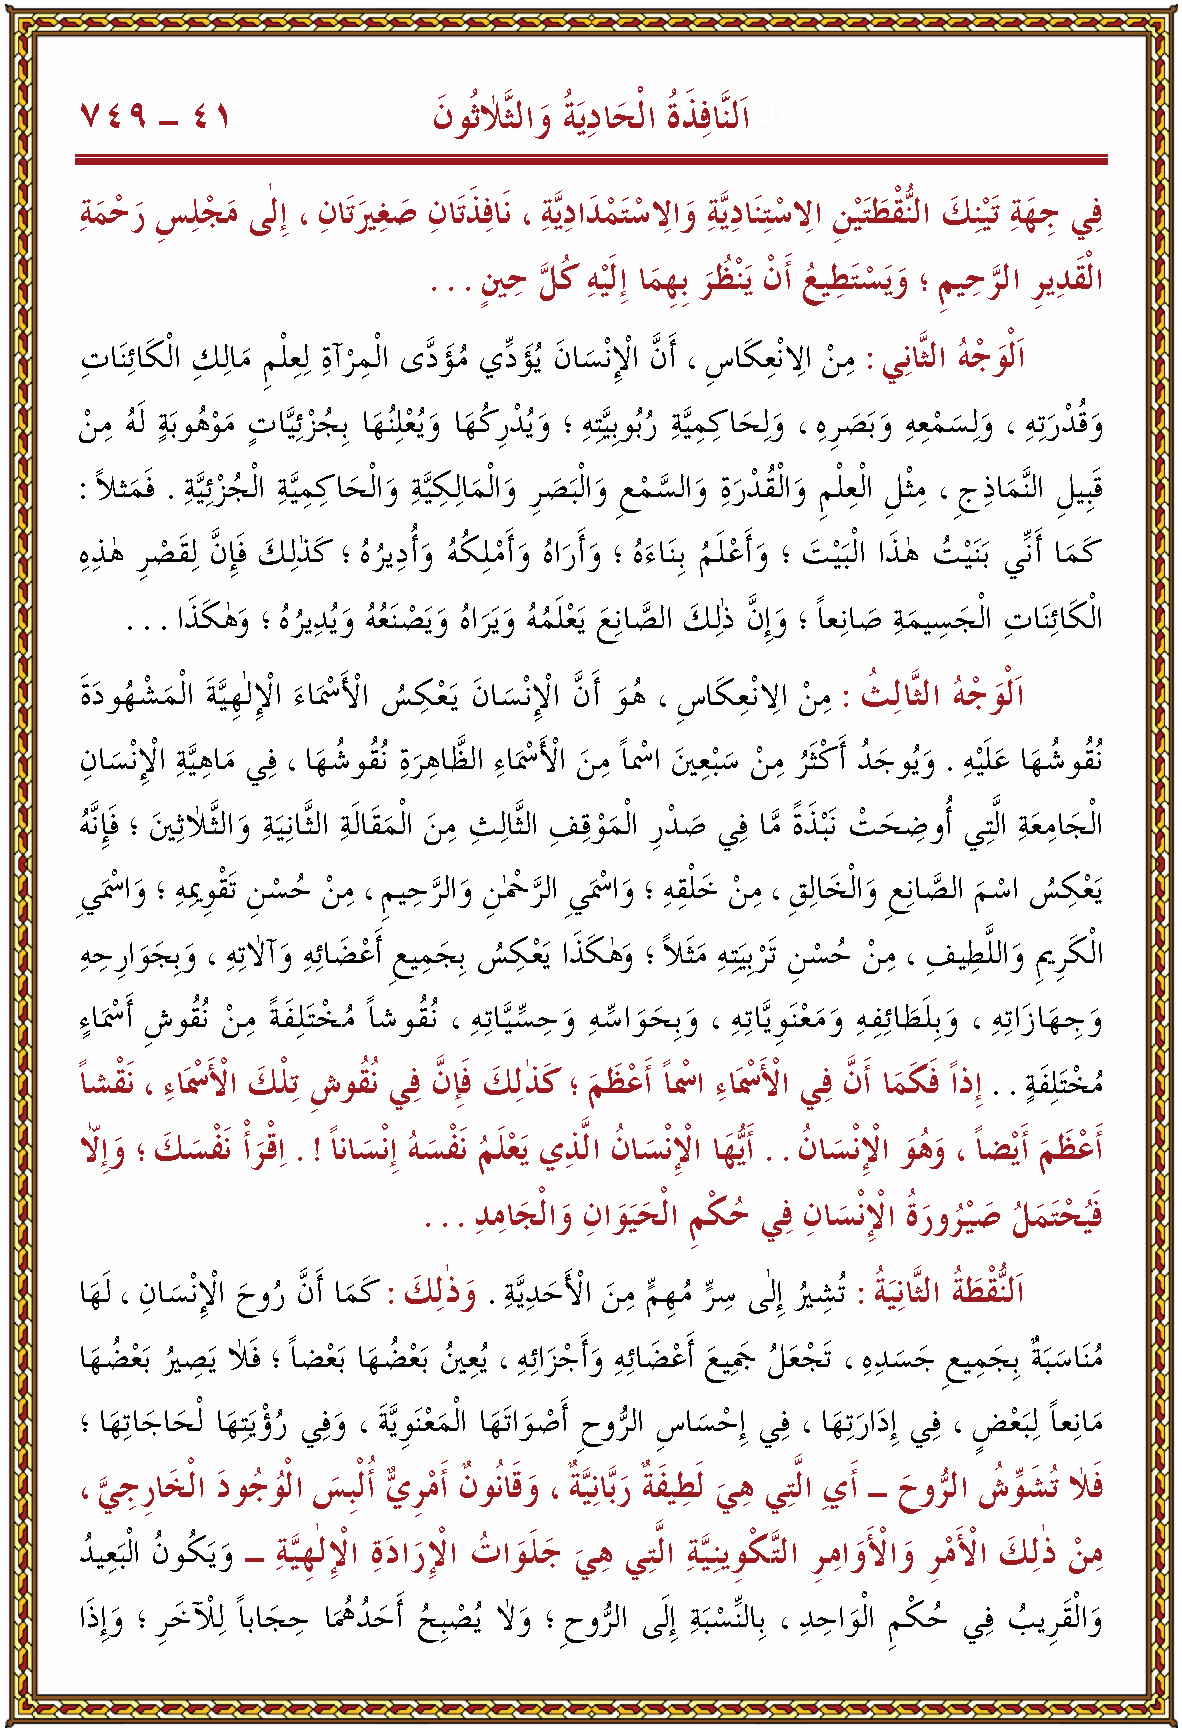 اَلنَّافِذَةُ الْحَادِيَةُ وَالثَّلاٰثُونَ ٤١ – ٧٤٩
فِي جِهَةِ تَيْنِكَ النُّقْطَتَيْنِ الاِسْتِنَادِيَّةِ وَالاِسْتَمْدَادِيَّةِ ، نَافِذَتَانِ صَغِيرَتَانِ ، إِلٰى مَجْلِسِ رَحْمَةِ
الْقَدِيرِ الرَّحِيمِ ؛ وَيَسْتَطِيعُ أَنْ يَنْظُرَ بِهِمَا إِلَيْهِ كُلَّ حِينٍ . . .
اَلْوَجْهُ الثَّانِي : مِنْ الاِنْعِكَاسِ ، أَنَّ الْإِنْسَانَ يُؤَدِّي مُؤَدَّى الْمِرْآةِ لِعِلْمِ مَالِكِ الْكَائِنَاتِ
وَقُدْرَتِهِ ، وَلِسَمْعِهِ وَبَصَرِهِ ، وَلِحَاكِمِيَّةِ رُبُوبِيَّتِهِ ؛ وَيُدْرِكُهَا وَيُعْلِنُهَا بِجُزْئِيَّاتٍ مَوْهُوبَةٍ لَهُ مِنْ
قَبِيلِ النَّمَاذِجِ ، مِثْلِ الْعِلْمِ وَالْقُدْرَةِ وَالسَّمْعِ وَالْبَصَرِ وَالْمَالِكِيَّةِ وَالْحَاكِمِيَّةِ الْجُزْئِيَّةِ . فَمَثلاً :
كَمَا أَنِّي بَنَيْتُ هٰذَا الْبَيْتَ ؛ وَأَعْلَمُ بِنَاءَهُ ؛ وَأَرَاهُ وَأَمْلِكُهُ وَأُدِيرُهُ ؛ كَذٰلِكَ فَإِنَّ لِقَصْرِ هٰذِهِ
الْكَائِنَاتِ الْجَسِيمَةِ صَانِعاً ؛ وَإِنَّ ذٰلِكَ الصَّانِعَ يَعْلَمُهُ وَيَرَاهُ وَيَصْنَعُهُ وَيُدِيرُهُ ؛ وَهٰكَذَا . . .
اَلْوَجْهُ الثَّالِثُ : مِنْ الاِنْعِكَاسِ ، هُوَ أَنَّ الْإِنْسَانَ يَعْكِسُ الْأَسْمَاءَ الْإِلٰهِيَّةَ الْمَشْهُودَةَ
نُقُوشُهَا عَلَيْهِ . وَيُوجَدُ أَكْثَرُ مِنْ سَبْعِينَ اسْماً مِنَ الْأَسْمَاءِ الظَّاهِرَةِ نُقُوشُهَا ، فِي مَاهِيَّةِ الْإِنْسَانِ
الْجَامِعَةِ الَّتِي أُوضِحَتْ نَبْذَةً مَّا فِي صَدْرِ الْمَوْقِفِ الثَّالِثِ مِنَ الْمَقَالَةِ الثَّانِيَةِ وَالثَّلاٰثِينَ ؛ فَإِنَّهُ
يَعْكِسُ اسْمَ الصَّانِعِ وَالْخَالِقِ ، مِنْ خَلْقِهِ ؛ وَاسْمَيِ الرَّحْمٰنِ وَالرَّحِيمِ ، مِنْ حُسْنِ تَقْوِيمِهِ ؛ وَاسْمَيِ
الْكَرِيمِ وَاللَّطِيفِ ، مِنْ حُسْنِ تَرْبِيَتِهِ مَثَلاً ؛ وَهٰكَذَا يَعْكِسُ بِجَمِيعِ أَعْضَائِهِ وَآلاٰتِهِ ، وَبِجَوَارِحِهِ
وَجِهَازَاتِهِ ، وَبِلَطَائِفِهِ وَمَعْنَوِيَّاتِهِ ، وَبِحَوَاسِّهِ وَحِسِّيَّاتِهِ ، نُقُوشاً مُخْتَلِفَةً مِنْ نُقُوشِ أَسْمَاءٍ
مُخْتَلِفَةٍ . . إِذاً فَكَمَا أَنَّ فِي الْأَسْمَاءِ اسْماً أَعْظَمَ ؛ كَذٰلِكَ فَإِنَّ فِي نُقُوشِ تِلْكَ الْأَسْمَاءِ ، نَقْشاً
أَعْظَمَ أَيْضاً ، وَهُوَ الْإِنْسَانُ . . أَيُّهَا الْإِنْسَانُ الَّذِي يَعْلَمُ نَفْسَهُ إِنْسَاناً ! . اِقْرَأْ نَفْسَكَ ؛ وَإِلاّٰ
فَيُحْتَمَلُ صَيْرُورَةُ الْإِنْسَانِ فِي حُكْمِ الْحَيَوَانِ وَالْجَامِدِ . . .
اَلنُّقْطَةُ الثَّانِيَةُ : تُشِيرُ إِلٰى سِرٍّ مُهِمٍّ مِنَ الْأَحَدِيَّةِ . وَذٰلِكَ : كَمَا أَنَّ رُوحَ الْإِنْسَانِ ، لَهَا
مُنَاسَبَةٌ بِجَمِيعِ جَسَدِهِ ، تَجْعَلُ جَمِيعَ أَعْضَائِهِ وَأَجْزَائِهِ ، يُعِينُ بَعْضُهَا بَعْضاً ؛ فَلاٰ يَصِيرُ بَعْضُهَا
مَانِعاً لِبَعْضٍ ، فِي إِدَارَتِهَا ، فِي إِحْسَاسِ الرُّوحِ أَصْوَاتَهَا الْمَعْنَوِيَّةَ ، وَفِي رُؤْيَتِهَا لْحَاجَاتِهَا ؛
فَلاٰ تُشَوِّشُ الرُّوحَ – أَيِ الَّتِي هِيَ لَطِيفَةٌ رَبَّانِيَّةٌ ، وَقَانُونٌ أَمْرِيٌّ أُلْبِسَ الْوُجُودَ الْخَارِجِيَّ ،
مِنْ ذٰلِكَ الْأَمْرِ وَالْأَوَامِرِ التَّكْوِينِيَّةِ الَّتِي هِيَ جَلَوَاتُ الْإِرَادَةِ الْإِلٰهِيَّةِ – وَيَكُونُ الْبَعِيدُ
وَالْقَرِيبُ فِي حُكْمِ الْوَاحِدِ ، بِالنِّسْبَةِ إِلَى الرُّوحِ ؛ وَلاٰ يُصْبِحُ أَحَدُهُمَا حِجَاباً لِلْآخَرِ ؛ وَإِذَا